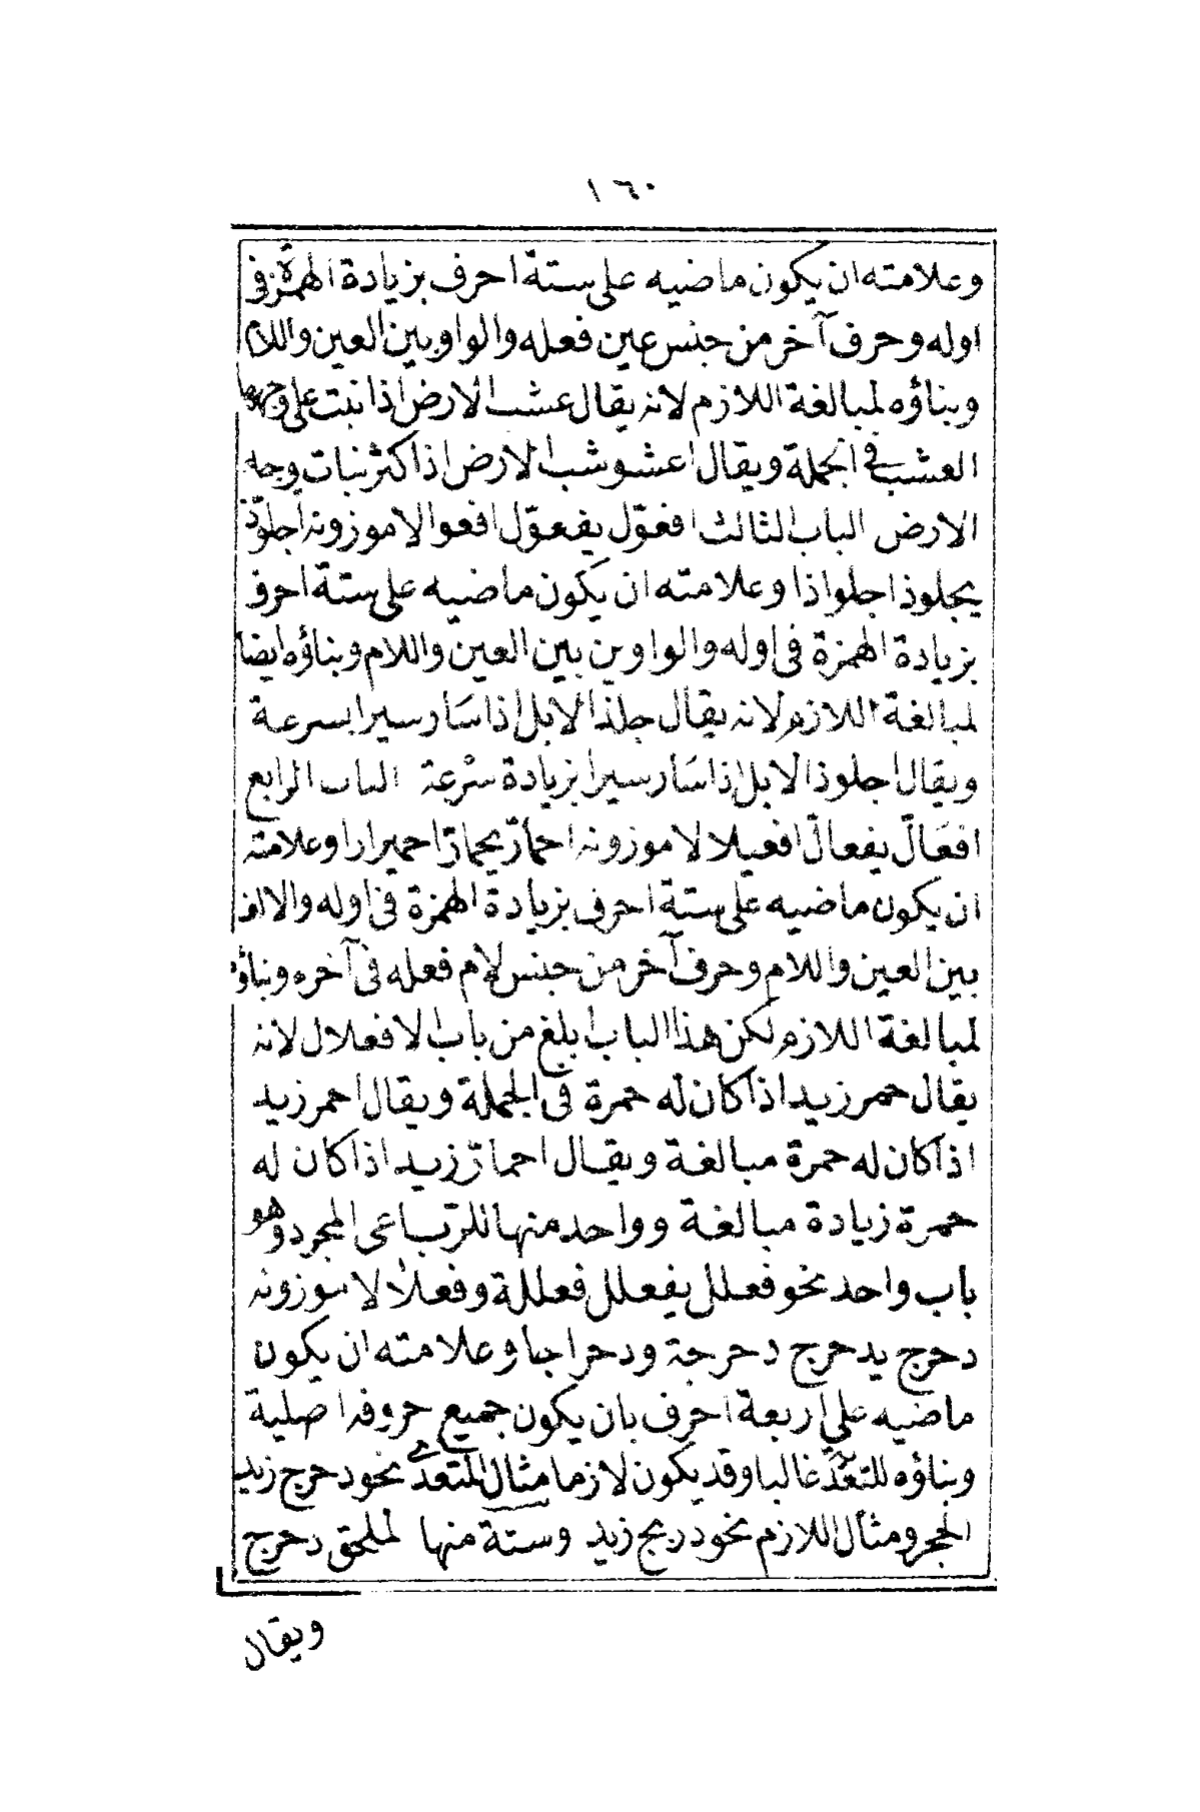 ١٦٠
وعلامته ان يكون ماضيه على ستة احرف بزيادة الهمزة فى
اوله وحرف آخر من جنس عين فعله والواو بين العين واللام
وبناؤه لمبالغة اللازم لانه يقال عشب الارض اذا نبت على وجهها
العشب فى الجملة ويقال اعشوشب الارض اذا كثر نبات وجه
الارض الباب الثالث افعوّل يفعوّل افعوالا موزونه اجلوّذ
يجلوذ اجلواذا وعلامته ان يكون ماضيه على ستة احرف
بزيادة الهمزة فى اوله والواوين بين العين واللام وبناؤه ايضا
لمبالغة اللازم لانه يقال جلذ الابل اذا سَار سيرا بسرعة
ويقال اجلوذ الابل اذا سَار سيرا بزيادة سُرعة الباب الرابع
افعَالّ يفعالّ افعيلالا موزونه احمارّ يحمارّ احميرارا وعلامته
ان يكون ماضيه على ستة احرف بزيادة الهمزة فى اوله والالف
بين العين واللام وحرف آخر من جنس لام فعله فى آخره وبناؤه
لمبالغة اللازم لكن هذا الباب ابلغ من باب الافعلال لانه
يقال حمر زيد اذا كان له حمرة فى الجملة ويقال احمر زيد
اذا كان له حمرة مبالغة ويقال احمارّ زيد اذا كان له
حمرة زيادة مبالغة وواحد منها للرّباعى المجرد وهو
باب واحد نحو فعلل يفعلل فعللة وفعلالا موزونه
دحرج يدحرج دحرجة ودحراجا وعلامته ان يكون
ماضيه على اربعة احرف بان يكون جميع حروفه اصلية
وبناؤه للتعدّية غالبا وقد يكون لازما مثال المتعدى نحو دحرج زيد
الحجر ومثال اللازم نحو دربج زيد وستة منها لملحق دحرج
ويقال